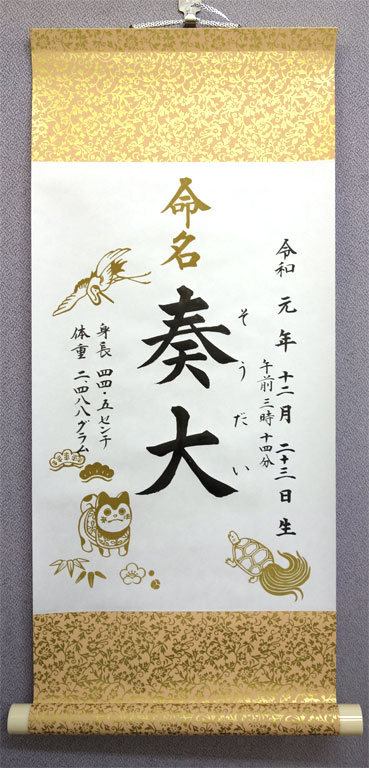 令和 元年 十二月 二十三日 生
午前 三時 十四分
命名
奏大
そうだい
身長 四四・五センチ
体重 二、四八八グラム